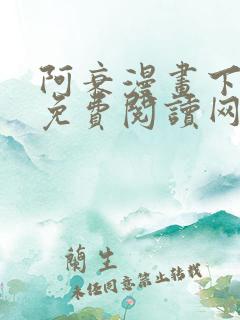 阿衰漫畫下
免費閱讀网
蘭生
未经同意禁止转载